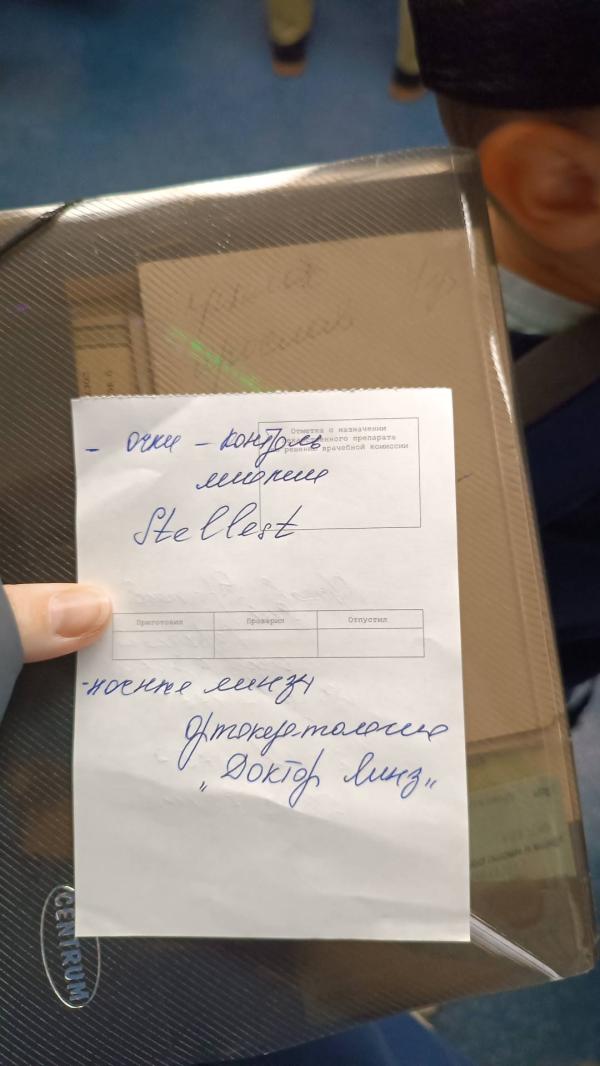 - очки - контроль
миопии
Stellest
Отметка о назначении
решении врачебной комиссии
Приготовил Проверил Отпустил
- ночные линзы
Ортокератология
„Доктор Линз"
CENTRUM